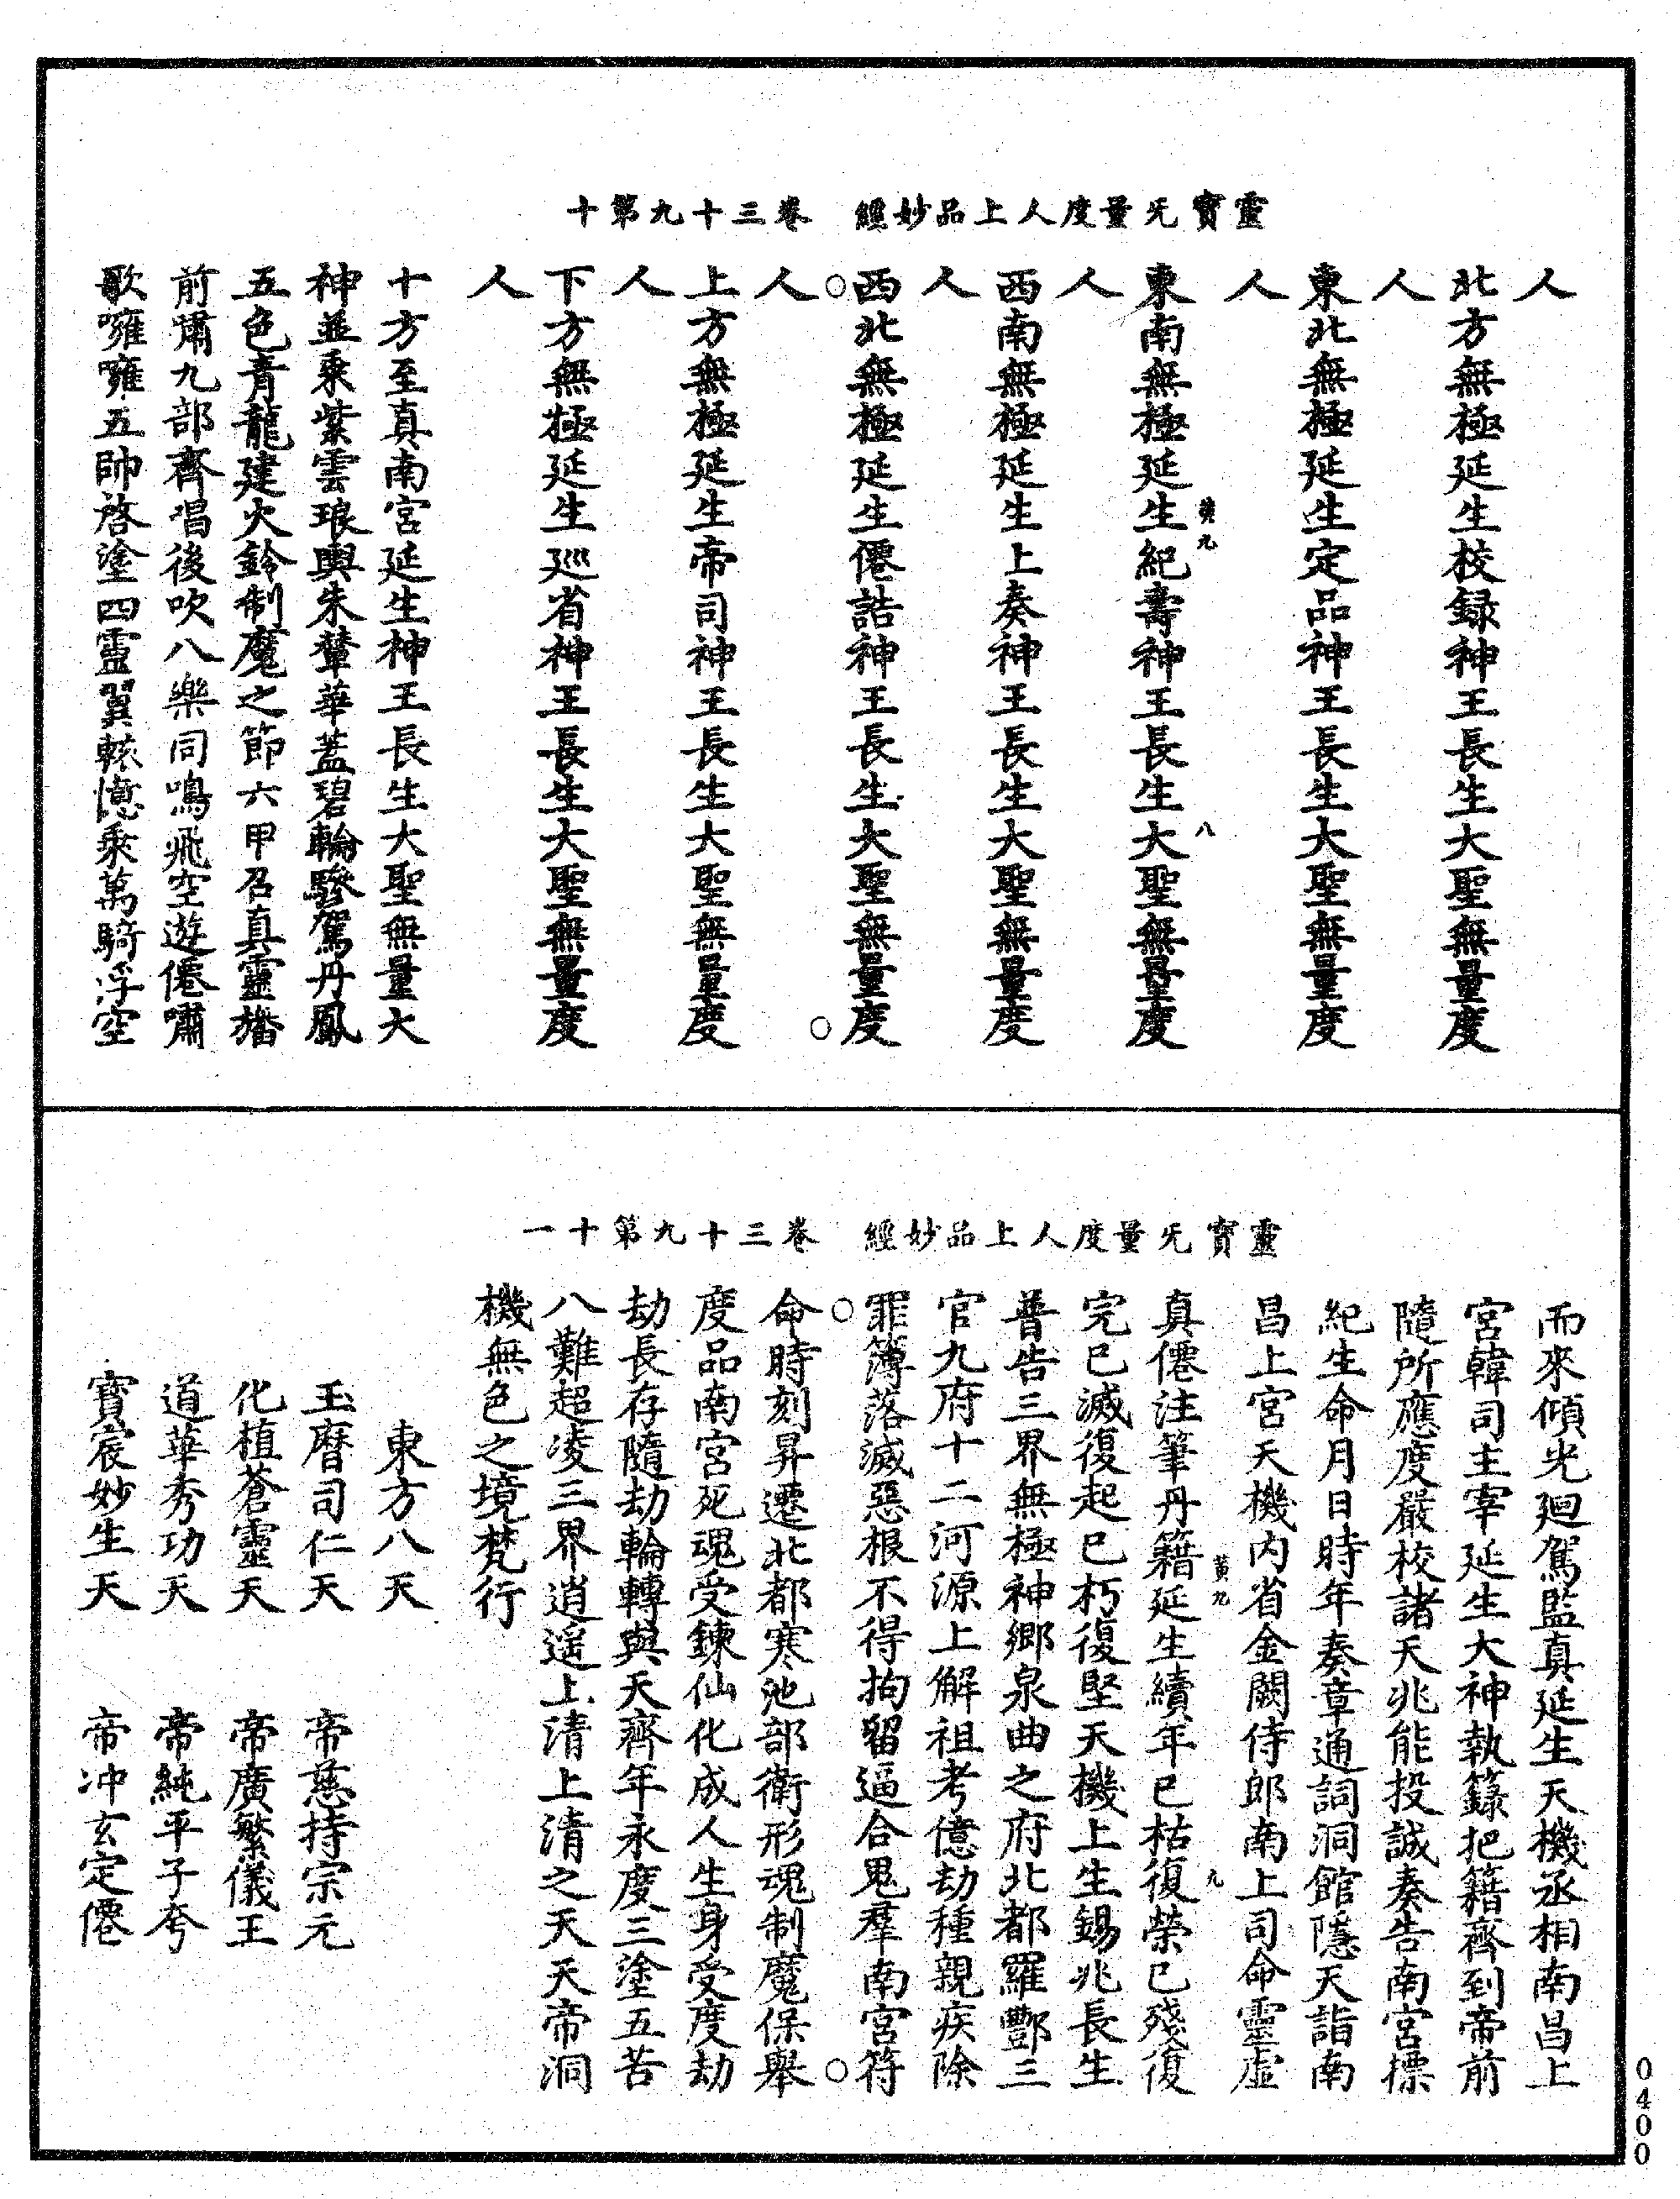 靈寶无量度人上品妙經　卷三十九第十
人
北方無極延生校録神王長生大聖無量度
人
東北無極延生定品神王長生大聖無量度
人
黄九　八
東南無極延生紀壽神王長生大聖無量度
人
西南無極延生上奏神王長生大聖無量度
人
西北無極延生僊誥神王長生大聖無量度
○　○
人
上方無極延生帝司神王長生大聖無量度
人
下方無極延生巡省神王長生大聖無量度
人
十方至真南宮延生神王長生大聖無量大
神並乘紫雲琅輿朱輦華蓋碧輪驂駕丹鳳
五色青龍建火鈴制魔之節六甲召真靈旛
前嘯九部齊唱後吹八樂同鳴飛空遊僊嘯
歌嗈嗈五帥啓塗四靈翼轅億乘萬騎浮空
靈寶无量度人上品妙經　卷三十九第十一
而來傾光廻駕監真延生天機丞相南昌上
宮韓司主宰延生大神執籙把籍齊到帝前
隨所應度嚴校諸天兆能投誠奏告南宮標
紀生命月日時年奏章通詞洞館隱天詣南
昌上宮天機内省金闕侍郎南上司命靈虛
黄九　九
真僊注筆丹籍延生續年已枯復榮已殘復
完已滅復起已朽復堅天機上生錫兆長生
普告三界無極神鄉泉曲之府北都羅酆三
官九府十二河源上解祖考億劫種親疾除
罪簿落滅惡根不得拘留逼合鬼羣南宮符
○　○
命時刻昇遷北都寒池部衛形魂制魔保舉
度品南宮死魂受鍊仙化成人生身受度劫
劫長存隨劫輪轉與天齊年永度三塗五苦
八難超凌三界逍遥上清上清之天天帝洞
機無色之境梵行
東方八天
玉曆司仁天　帝慈持宗元
化植蒼靈天　帝廣繁儀王
道華秀功天　帝純平子夸
寶宸妙生天　帝冲玄定僊
0400